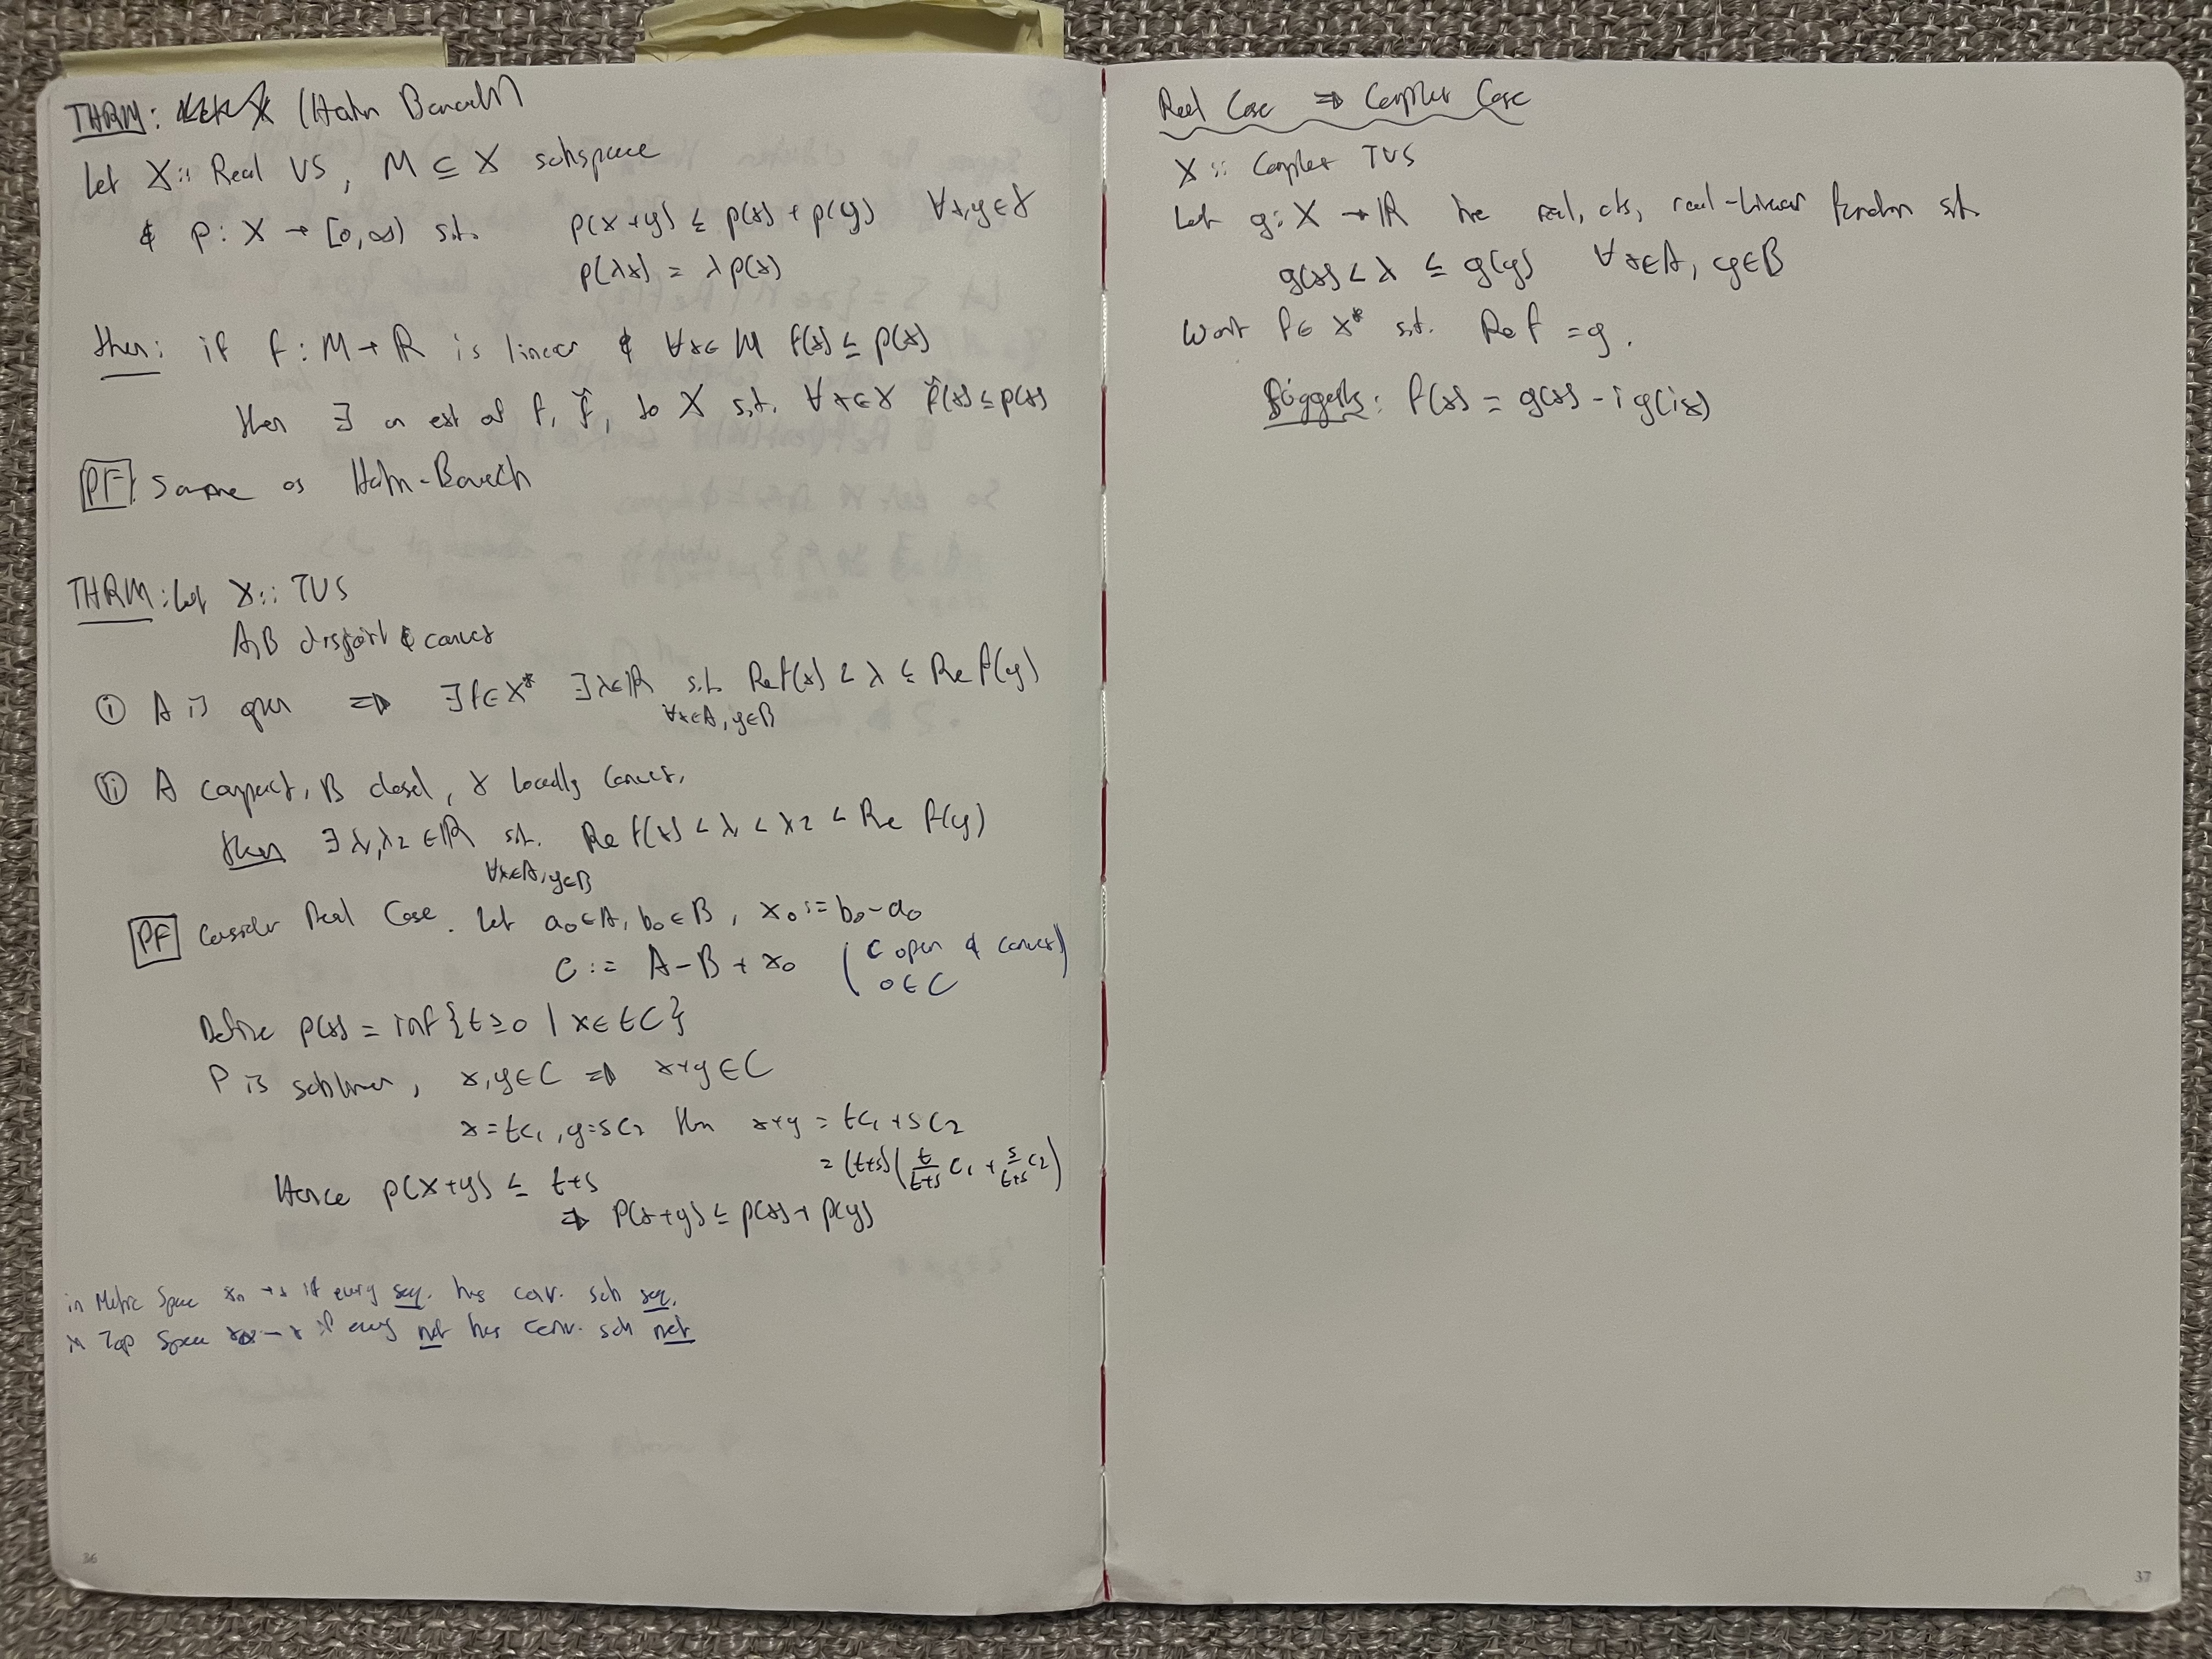 THRM: (Hahn Banach)
Let X :: Real VS, M ⊆ X subspace
& p: X → [0,∞) s.t. p(x+y) ≤ p(x)+p(y) ∀x,y∈X
p(λx) = λp(x)
then: if f: M → ℝ is linear & ∀x∈M f(x) ≤ p(x)
then ∃ an ext of f, f̃, to X s.t. ∀x∈X f̃(x) ≤ p(x)
PF: Same as Hahn-Banach
THRM: Let X :: TVS
A,B disjoint & convex
① A is open ⇒ ∃f∈X* ∃λ∈ℝ s.t. Re f(x) < λ ≤ Re f(y)
∀x∈A, y∈B
ⓘⓘ A compact, B closed, X locally convex,
then ∃ λ₁,λ₂∈ℝ s.t. Re f(x) < λ₁ < λ₂ < Re f(y)
∀x∈A, y∈B
PF Consider Real Case. Let a₀∈A, b₀∈B, x₀ := b₀-a₀
C := A-B+x₀ (C open & convex)
0∈C
Define p(x) = inf{t ≥ 0 | x∈tC}
P is sublinear, x,y∈C ⇒ x+y∈C
x=tc₁, y=sc₂ then x+y = tc₁+sc₂
= (t+s)(t/(t+s) c₁ + s/(t+s) c₂)
Hence p(x+y) ≤ t+s
⇒ p(x+y) ≤ p(x)+p(y)
in Metric Space xₙ → x if every seq. has conv. sub seq.
in Top Space → x if every net has conv. sub net
36
Real Case ⇒ Complex Case
X :: Complex TVS
Let g: X → ℝ be real, cts, real-linear function st.
g(x) < λ ≤ g(y) ∀x∈A, y∈B
Want f∈X* s.t. Re f = g.
f(x) = g(x) - i g(ix)
37